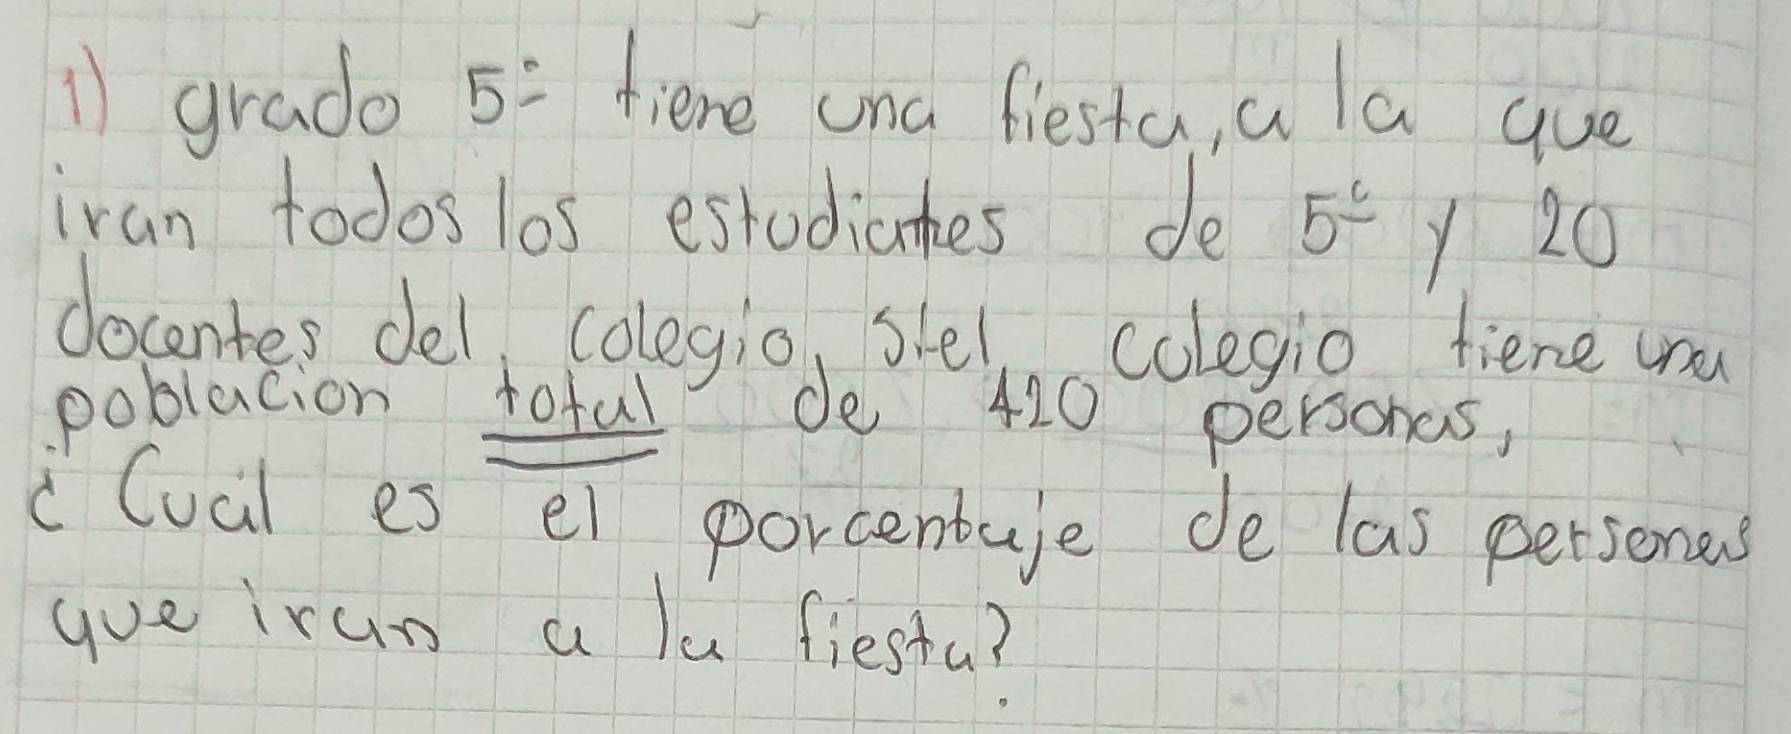 1) grado 5º tiene una fiesta, a la que
iran todos los estudiantes de 5º y 20
docentes del colegio, si el colegio tiene una
poblacion total de 420 personas,
¿Cuál es el porcentaje de las personas
que iran a la fiesta?